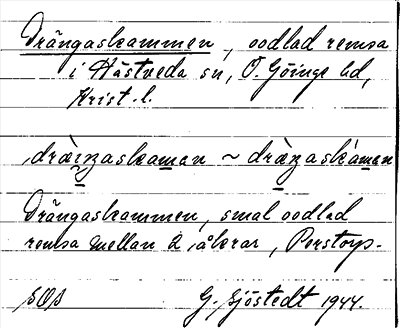 Drängaskammen, oodlad remsa
i Hästveda sn, Ö. Göinge hd,
Krist. l.
dräŋaskaman ~ dräŋaskáman
Drängaskammen, smal oodlad
remsa mellan 2 åkrar, Perstorp.
SOS G. Sjöstedt 1944.